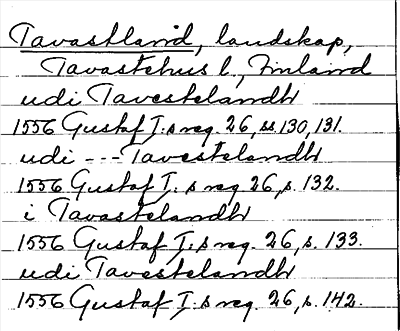 Tavastland, landskap,
Tavastehus l., Finland
udi Tavestelandh
1556 Gustaf I:s reg. 26, ss. 130, 131.
udi --- Tavestelandh
1556 Gustaf I:s reg 26, s. 132.
i Tavastelandh
1556 Gustaf I:s reg. 26, s. 133.
udi Tavestelandh
1556 Gustaf I:s reg. 26, s. 142.